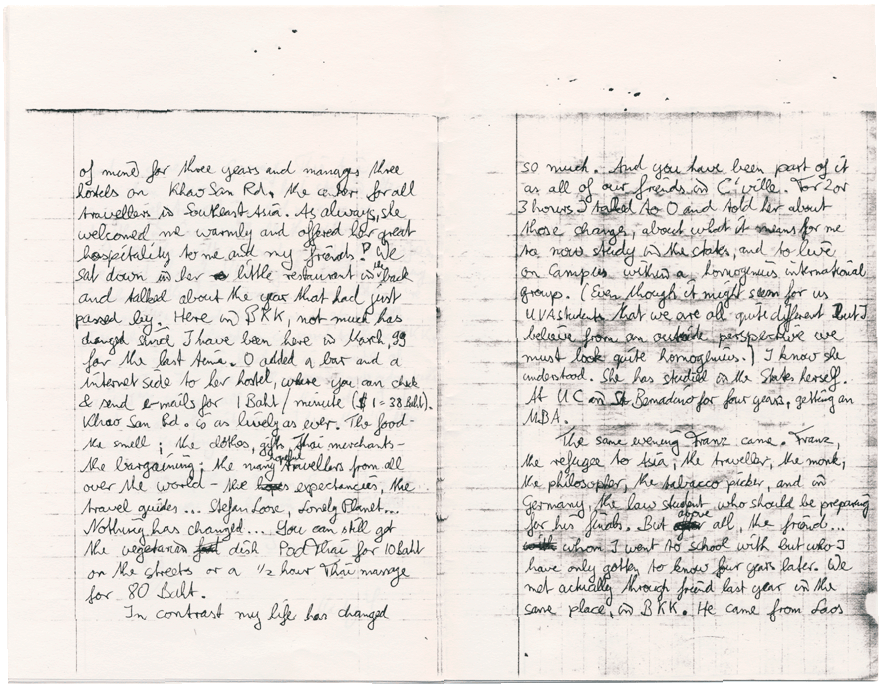 of mine for three years and manages three
hostels on Khao San Rd, the center for all
travellers in Southeast Asia. As always, she
welcomed me warmly and offered her great
hospitality to me and my friends! We
sat down in her little restaurant in the back
and talked about the year that had just
passed by. Here in BKK, not much has
changed since I have been here in March, 99
for the last time. O added a bar and a
internet side to her hostel, where you can check
& send e-mails for 1 Baht/minute ($1=38 Baht).
Khao San Rd. is as lively as ever. The food-
the smell; the clothes, gifts, Thai merchants-
the bargaining; the many travellers from all
over the world - the expectancies, the
travel guides... Stefan Loose, Lonely Planet...
Nothing has changed... You can still get
the vegetarian dish Pad Thai for 10 Baht
on the streets or a 1/2 hour Thai massage
for 80 Baht.
In contrast my life has changed
so much. And you have been part of it
as all of our friends in C'ville. For 2 or
3 hours I talked to O and told her about
those changes, about what it means for me
to now study in the states, and to live
on Campus within a homogenius international
group. (Even though it might seem for us
UVA students that we are all quite different but I
believe from an outside perspective we
must look quite homogenius.) I know she
understood. She has studied in the States herself.
At UC in St Bernadino for four years, getting an
MBA.
The same evening Franz came. Franz,
the refugee to Asia; the traveller, the monk,
the philosopher, the tabacco picker, and in
Germany, the law student who should be preparing
for his finals. But above all, the friend...
whom I went to school with but who I
have only gotten to know four years later. We
met actually through friend last year in the
same place, in BKK. He came from Laos